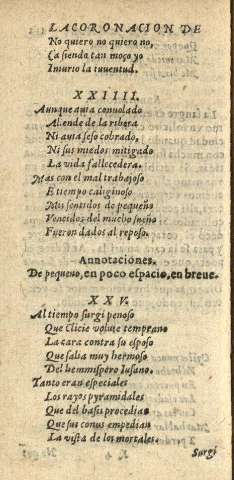 LA CORONACION DE
No quiero no quiero no,
Ca siendo tan moço yo
Inurio la iuuentud.
XXIIII.
Aunque auia conuolado
Allende de la ribera
Ni auia seso cobrado,
Ni sus miedos mitigado
La vida fallecedera.
Mas con el mal trabajoso
E tiempo caliginoso
Mis sentidos de pequeño
Vencidos del mucho sueño
Fueron dados al reposo.
Annotaciones.
De pequeño, en poco espacio, en breue.
XXV.
Al tiempo surgi penoso
Que Clicie volute temprano
La cara contra su esposo
Que salia muy hermoso
Del hemmispero Iusano.
Tanto eran especiales
Los rayos pyramidales
Que del basis procedian
Que sus conus empedian
La vista de los mortales.
Surgi